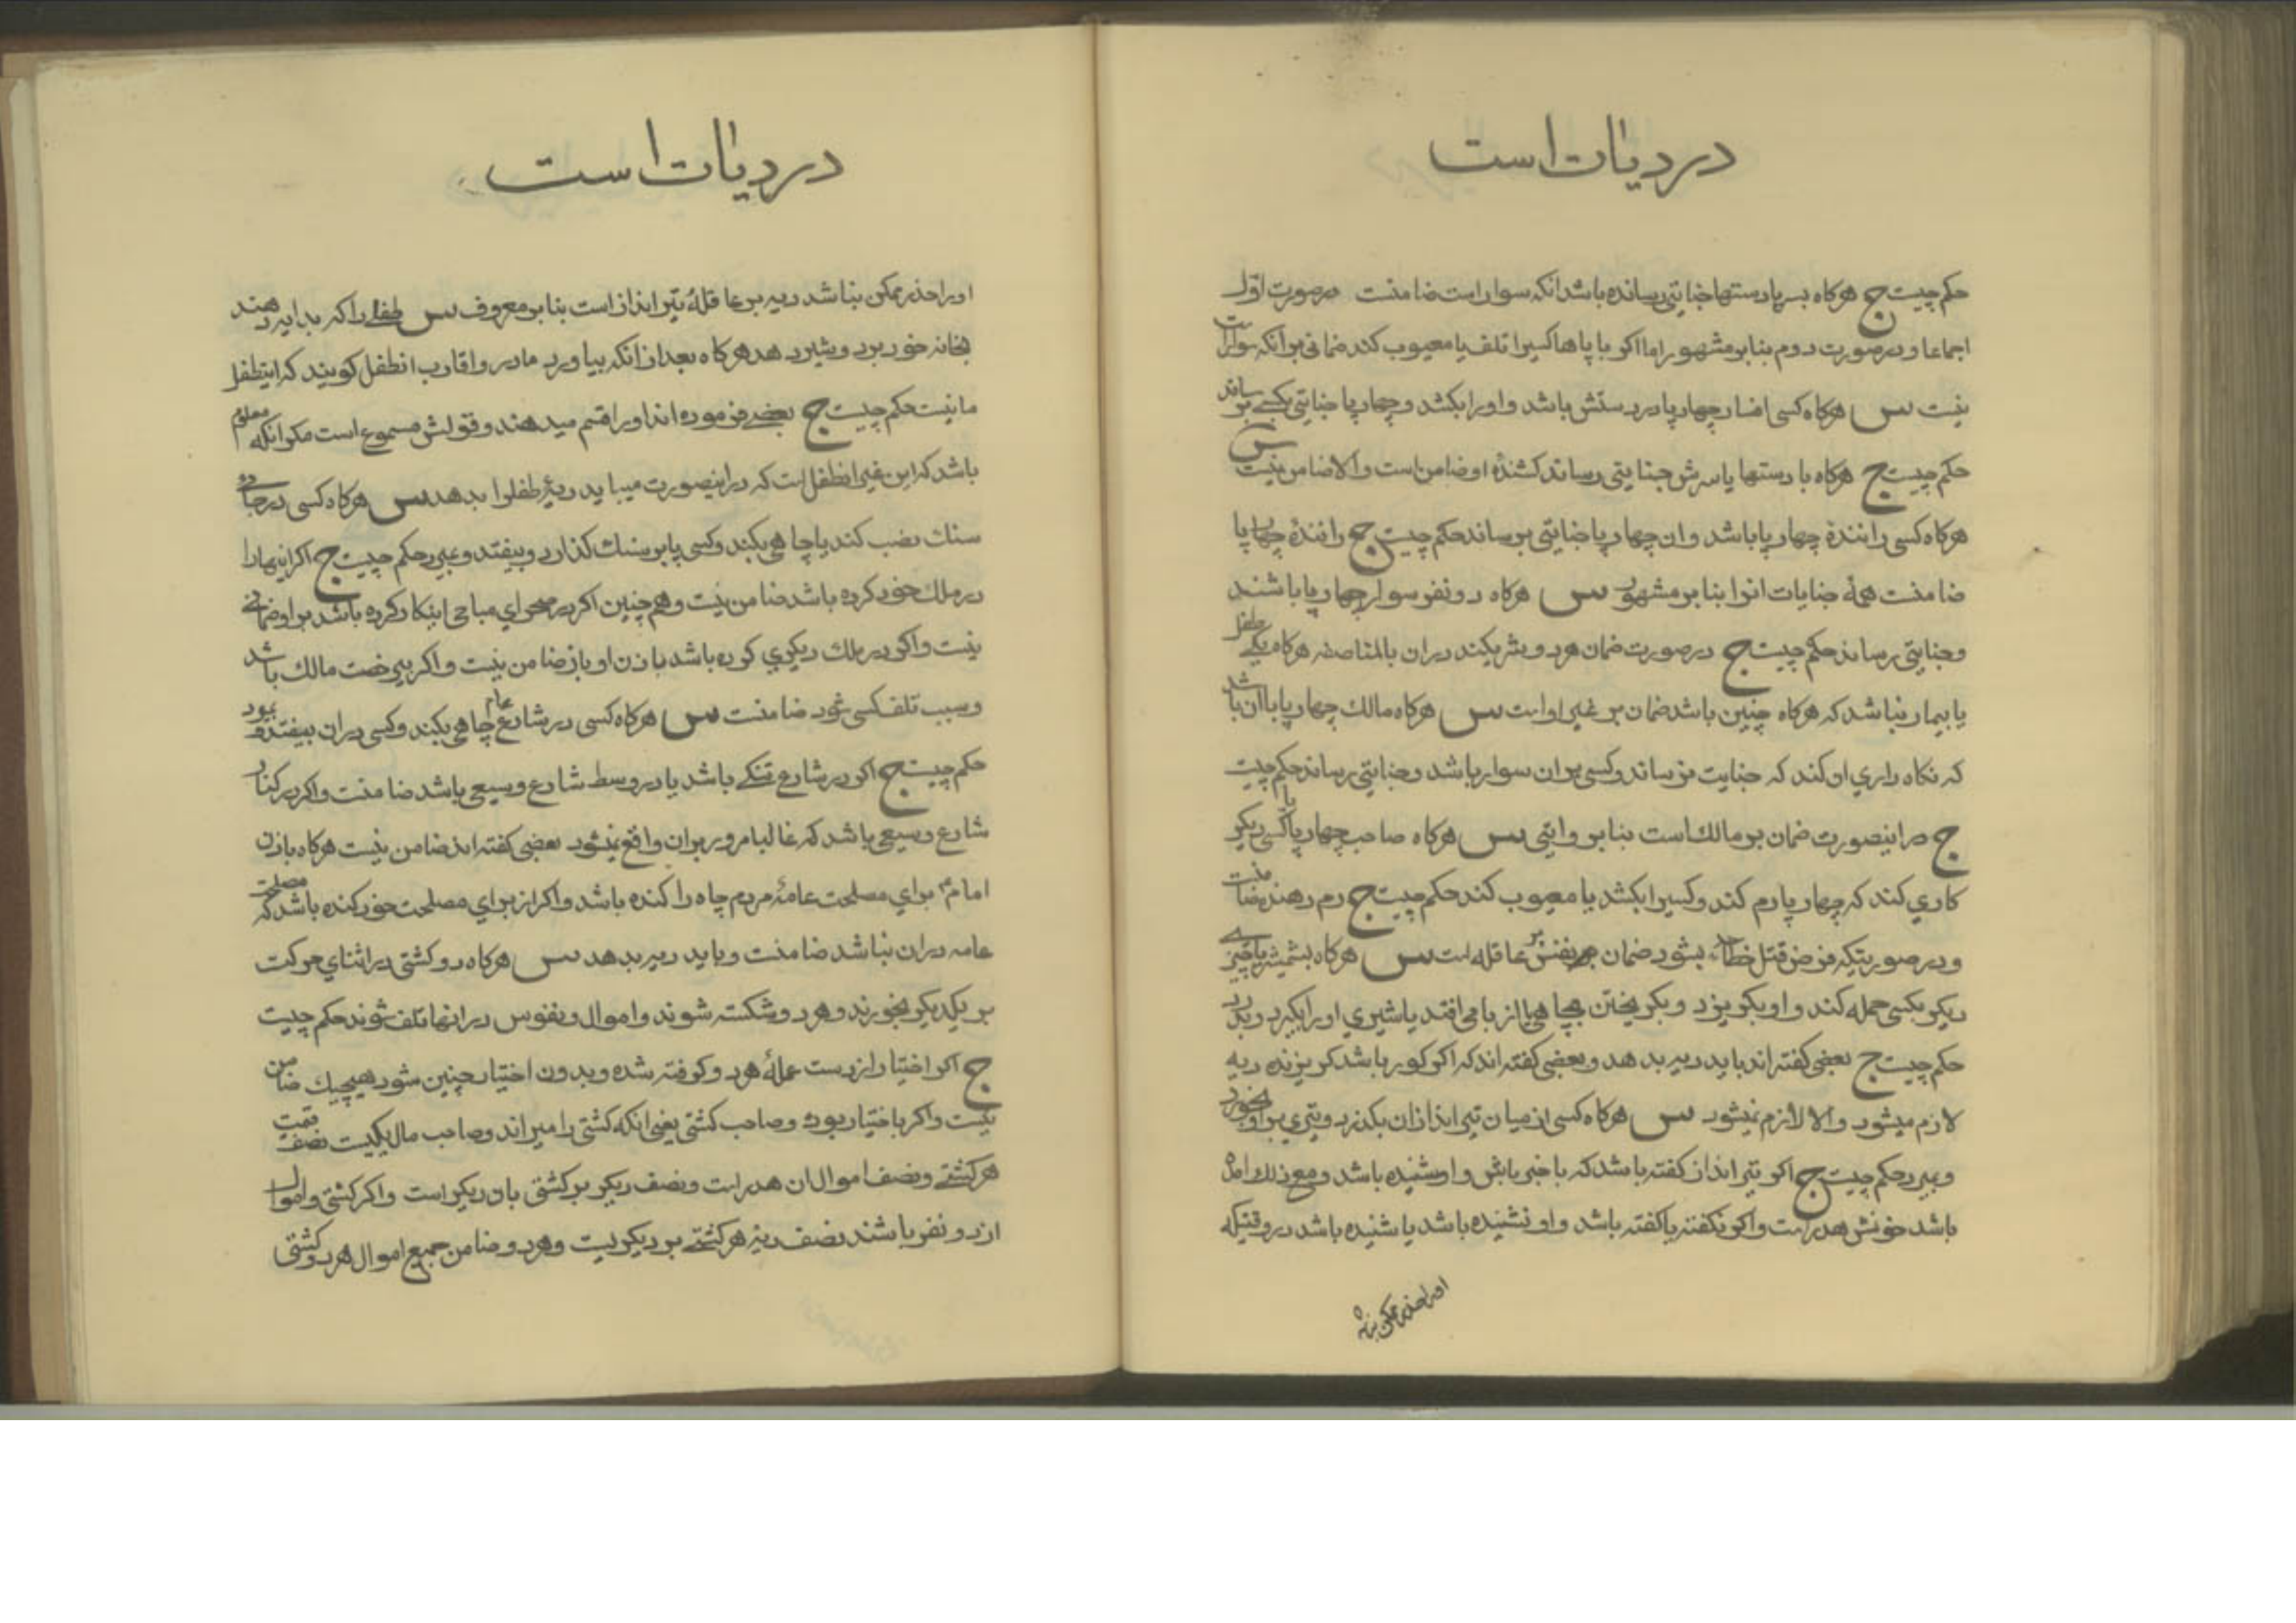 در دیات است
حکم چیست ج هرکاه بسر یا دستها جنایتی رسانده باشد انکه سوار است ضامنست در صورت اول
اجماعا و در صورت دوم بنابر مشهور اما اکر با پاها کسیرا تلف یا معیوب کند ضمانی بر انکه سوار است
نیست س هرکاه کسی افسار چهارپا در دستش باشد و اورا بکشد و چهارپا جنایتی بکسی برساند
حکم چیست ج هرکاه با دستها یا سرش جنایتی رساند کشندهٔ او ضامن است و الا ضامن نیست س
هرکاه کسی رانندهٔ چهارپا باشد و ان چهارپا جنایتی برساند حکم چیست ج رانندهٔ چهارپا
ضامنست همهٔ جنایات انرا بنابر مشهور س هرکاه دو نفر سوار چهارپا باشند
و جنایتی رساند حکم چیست ج در صورت ضمان هر دو شریکند در ان بالمناصفه هرکاه یکی طفل
یا بیمار نباشد که هرکاه چنین باشد ضمان بر غیر او است س هرکاه مالک چهارپا با ان باشد
که نکاه داری ان کند که جنایت نرساند و کسی بر ان سوار باشد و جنایتی رساند حکم چیست
ج در اینصورت ضمان بر مالک است بنابر روایتی س هرکاه صاحب چهارپا یا کسی دیکر
کاری کند که چهارپا رم کند و کسیرا بکشد یا معیوب کند حکم چیست ج رم دهنده ضامنست
و در صورتیکه فرض قتل خطا بشود ضمان نفس بر عاقله است س هرکاه بشمشیر یا چیزی
دیکر بکسی حمله کند و او بکریزد و بکریختن بچاهی یا از بامی افتد یا شیری اورا بکیرد و بدرد
حکم چیست ج بعضی کفته اند باید دیه بدهد و بعضی کفته اند که اکر کور باشد کریزنده دیه
لازم میشود و الا لازم نمیشود س هرکاه کسی از میان تیر اندازان بکذرد و تیری بر او بخورد
و بمیرد حکم چیست ج اکر تیر انداز کفته باشد که با خبر باش و او شنیده باشد و مع ذلک امده
باشد خونش هدر است و اکر نکفته یا کفته باشد و او نشنیده باشد یا شنیده باشد در وقتیکه
اورا حذر ممکن نباشد
در دیات است
اورا حذر ممکن نباشد دیه بر عاقلهٔ تیر انداز است بنابر معروف س طفلی را که بدایه دهند
بخانه خود برد و شیر دهد هرکاه بعد از انکه بیاورد مادر و اقارب انطفل کویند که اینطفل
ما نیست حکم چیست ج بعضی فرموده اند اورا قسم میدهند و قولش مسموع است مکر انکه معلوم
باشد که این غیر انطفل است که در اینصورت میباید دیهٔ طفلرا بدهد س هرکاه کسی در جادهٔ
سنک نصب کند یا چاهی بکند و کسی پا بر سنک کذارد و بیفتد و بمیرد حکم چیست ج اکر اینهارا
در ملک خود کرده باشد ضامن نیست و هم چنین اکر در صحرای مباحی اینکار کرده باشد بر او ضمانی
نیست و اکر در ملک دیکری کرده باشد باذن او باز ضامن نیست و اکر بیرخصت مالک باشد
و سبب تلف کسی شود ضامنست س هرکاه کسی در شارع عام چاهی بکند و کسی در ان بیفتد و بمیرد
حکم چیست ج اکر در شارع تنکی باشد یا در وسط شارع وسیعی باشد ضامنست و اکر در کنار
شارع وسیعی باشد که غالبا مرور بر ان واقع نمیشود بعضی کفته اند ضامن نیست هرکاه باذن
امام برای مصلحت عامهٔ مردم چاه را کنده باشد و اکر از برای مصلحت خود کنده باشد که مصلحت
عامه در ان نباشد ضامنست و باید دیه بدهد س هرکاه دو کشتی در اثنای حرکت
بر یکدیکر بخورند و هر دو شکسته شوند و اموال و نفوس در انها تلف شوند حکم چیست
ج اکر اختیار از دست عملهٔ هر دو کرفته شده و بدون اختیار چنین شود هیچیک ضامن
نیست و اکر باختیار بود و صاحب کشتی یعنی انکه کشتی را میراند و صاحب مال یکیست نصف قیمت
هر کشتی و نصف اموال ان هدر است و نصف دیکر بر کشتی بان دیکر است و اکر کشتی و اموال
از دو نفر باشند نصف دیهٔ هر کشتی بر دیکریست و هر دو ضامن جمیع اموال هر دو کشتی